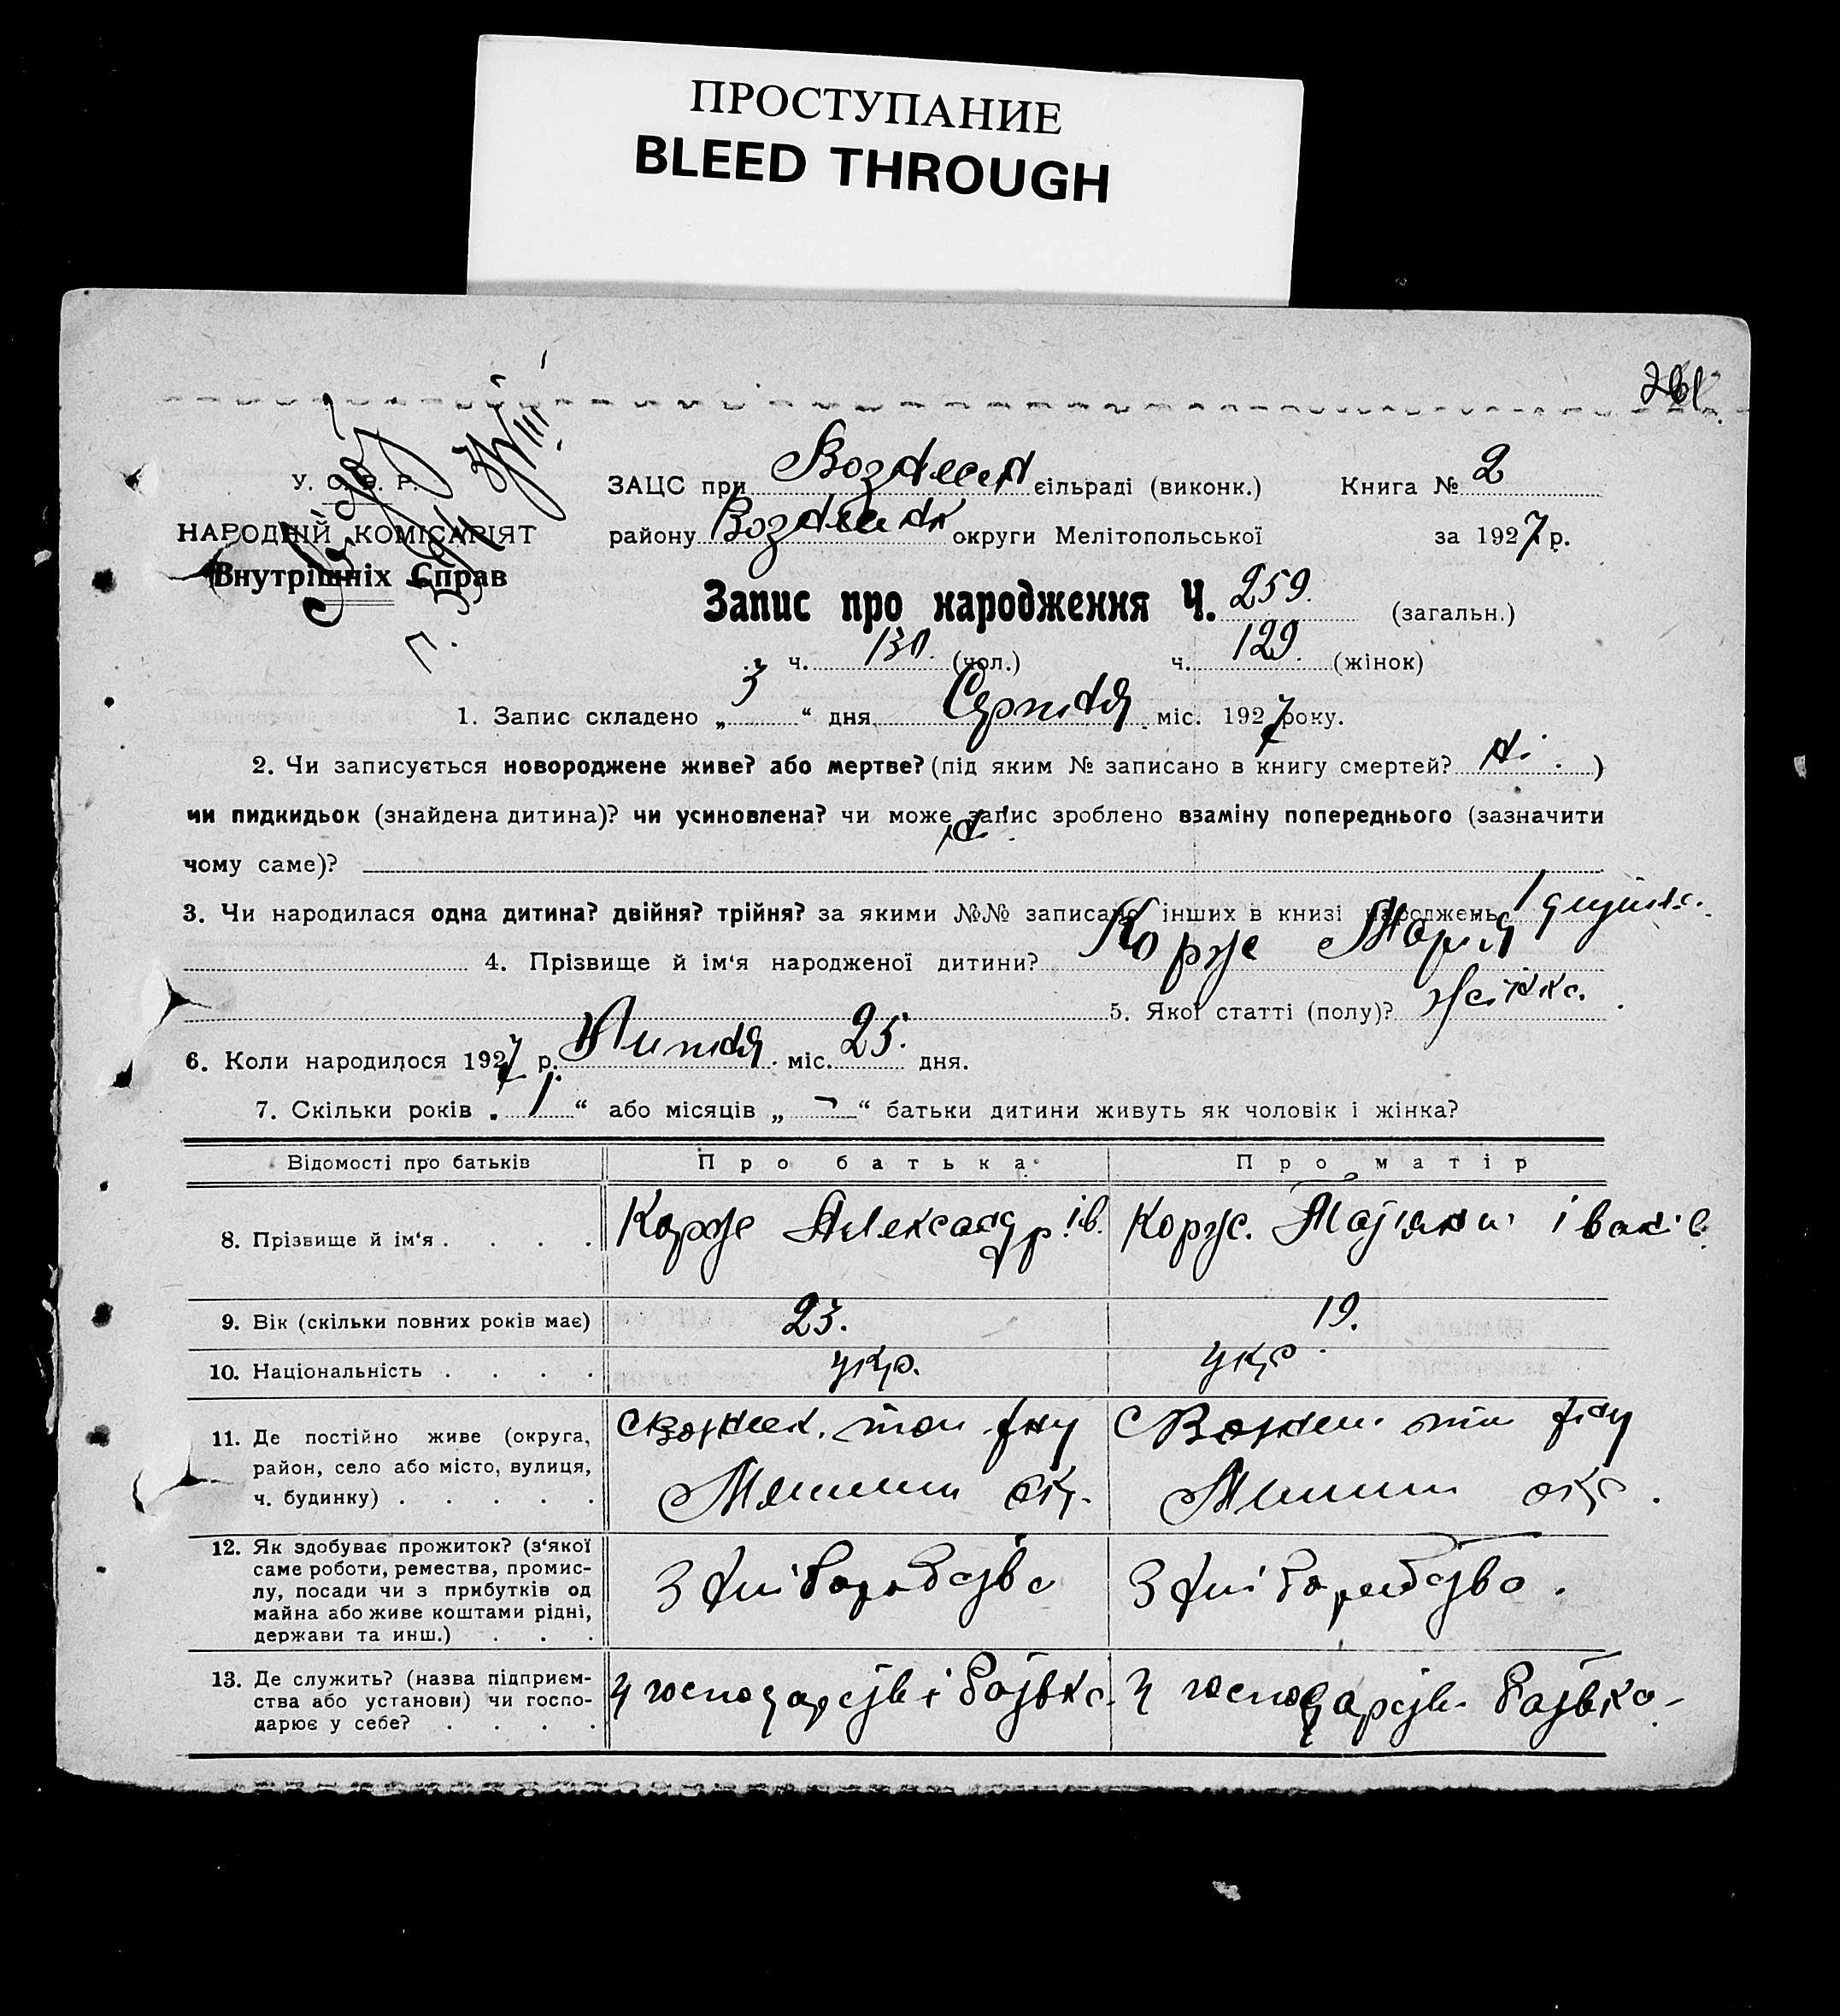 ПРОСТУПАНИЕ
BLEED THROUGH
261
У. С. Р. Р.
НАРОДНІЙ КОМІСАРІЯТ
Внутрішніх Справ
ЗАЦС при Вознесен сільраді (виконк.) Книга № 2
району Вознесен округи Мелітопольської за 1927 р.
Запис про народження Ч. 259. (загальн.)
ч. 130. (чол.) ч. 129. (жінок)
1. Запис складено „ 3 “ дня Серпня міс. 1927 року.
2. Чи записується новороджене живе? або мертве? (під яким № записано в книгу смертей? ні. )
чи пидкидьок (знайдена дитина)? чи усиновлена? чи може запис зроблено взаміну попереднього (зазначити
чому саме)? ні.
3. Чи народилася одна дитина? двійня? трійня? за якими №№ записано інших в книзі народжень 1 дитина.
4. Прізвище й ім‘я народженої дитини? Корж Марія
5. Якої статті (полу)? жінка.
6. Коли народилося 1927 р. Липня міс. 25. дня.
7. Скільки років „ 1 “ або місяців „ — “ батьки дитини живуть як чоловік і жінка?
Відомості про батьків Про батька Про матір
8. Прізвище й ім‘я . . . . Корж Александр ів. Корж. іванів.
9. Вік (скільки повних років має) 23. 19.
10. Національність . . . . укр. укр.
11. Де постійно живе (округа,
район, село або місто, вулиця,
ч. будинку) . . . . .
12. Як здобуває прожиток? (з‘якої
саме роботи, ремества, промис-
лу, посади чи з прибутків од
майна або живе коштами рідні,
держави та инш.) . . .
З хліборобства З хліборобства.
13. Де служить? (назва підприєм-
ства або установи) чи госпо-
дарює у себе? . . . .
У господарстві батька. У господарстві батька